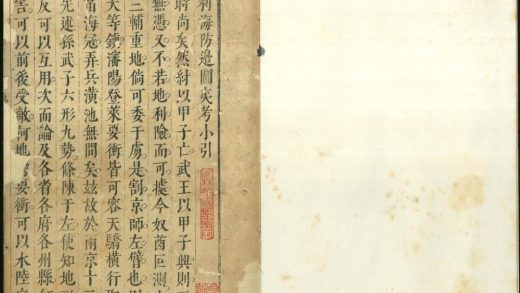 海防邊圖夷考小引
時尚矣然紂以甲子亡武王以甲子興則
無憑又不若地利險而可據今奴酋叵測
三輔重地倘可委于虜是割京師左臂也
大等鎮瀋陽登萊要衝皆可容天驕橫行
海冠弄兵潢池無間矣茲故於南京十
先述孫武子六形九勢條陳于左使知地
反可以互用次而論及各省各府各州縣
可以前後受敵何地要衝可以水陸